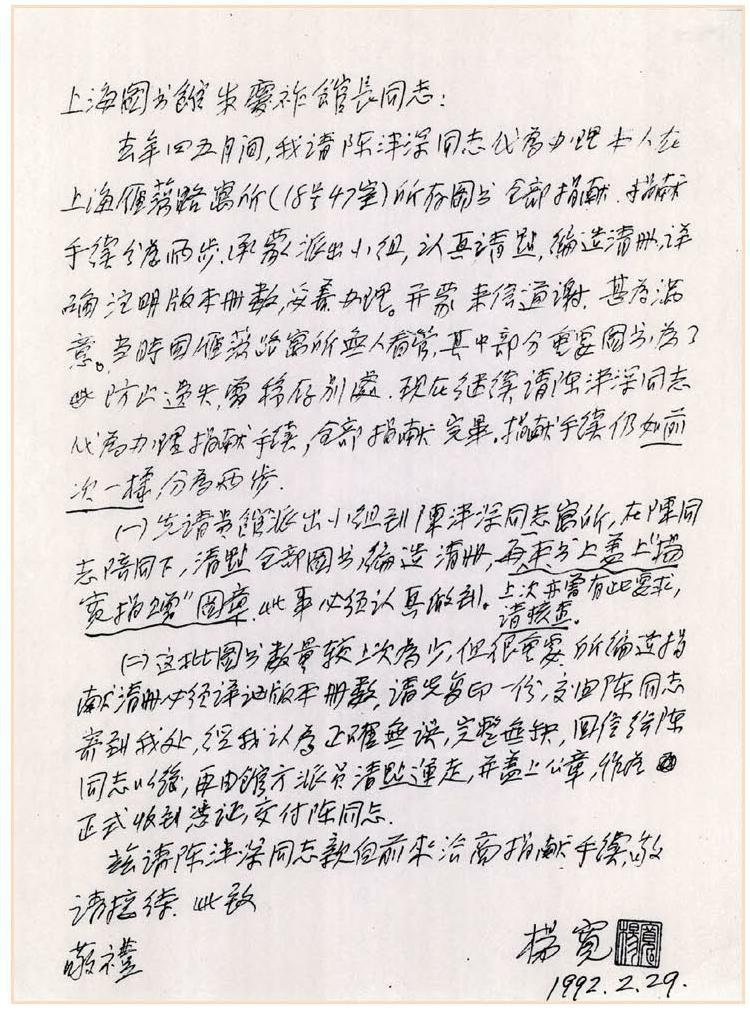 上海图书館朱慶祚館長同志：
去年四五月间，我请陈泮深同志代為办理本人在
上海雁荡路寓所（18号47室）所存图书全部捐献．捐献
手续分為两步．承蒙派出小组，认真清點，編造清册，详
确注明版本册数，妥善办理。并蒙来信道谢．甚為满
意。当時因雁荡路寓所無人看管，其中部分重要图书，為了
防止遗失，曾移存别處．现在继续请陈泮深同志
代為办理捐献手续，全部捐献完畢．捐献手续仍如前
次一樣分為两步．
（一）先请贵館派出小组到陳泮深同志寓所，在陳同
志陪同下，清點全部图书，編造清册，每本书上蓋上“楊
寬捐贈”图章．此事必须认真做到。上次亦曾有此要求，
请核查。
（二）这批图书数量较上次為少，但很重要．所編造捐
献清册必须详记版本册数，请先复印一份，交由陈同志
寄到我处，经我认為正確無误，完整無缺，回信给陈
同志以後，再由館方派员清點運走，并盖上公章，作為
正式收到憑证，交付陈同志．
兹请陈泮深同志親自前来洽商捐献手续，敬
请接待．此致
敬禮
楊寬
1992.2.29.